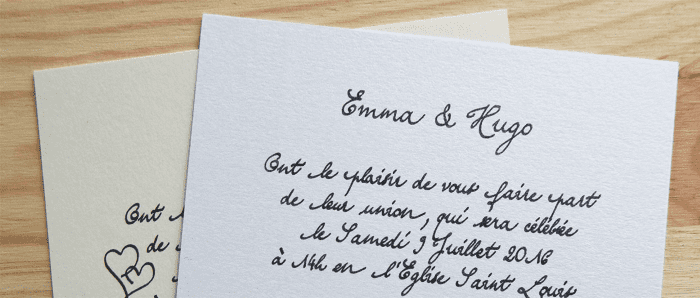 Emma & Hugo
Ont le plaisir de vous faire part
de leur union, qui sera célébée
le Samedi 9 Juillet 2016
à 14h en l'Église Saint Louis
Ont
de